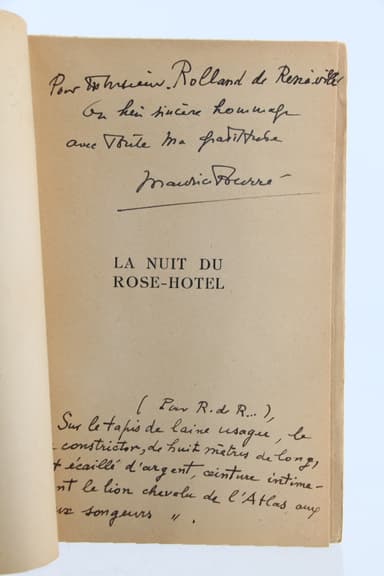 Pour Monsieur Rolland de Renéville
En bien sincère hommage
avec Toute ma gratitude
Maurice Fourré
LA NUIT DU
ROSE-HOTEL
(Pour R. de R...),
Sur le tapis de laine usagu, le
constrictor, de huit mètres de long,
écaillé d'argent, ceinture intime-
nt le lion chevelu de l'Atlas aux
ux songeurs ".